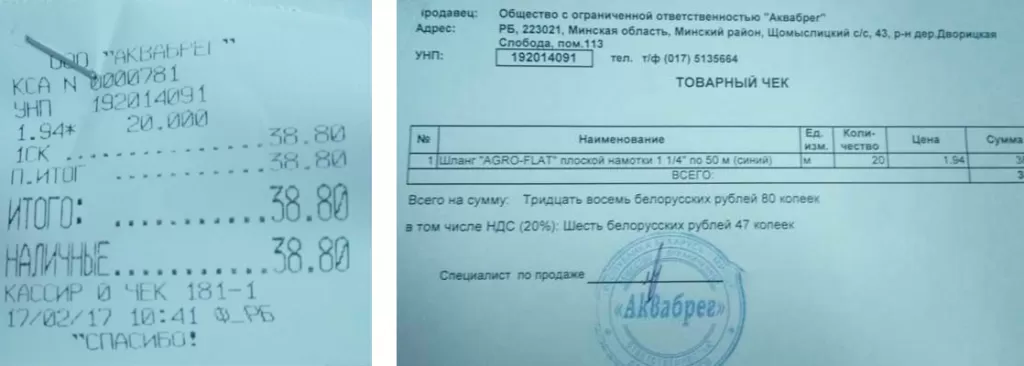 ООО "АКВАБРЕГ"
КСА N 0000781
УНП 192014091
1.94* 20.000
1СК ............ 38.80
П.ИТОГ ............ 38.80
ИТОГО: ............ 38.80
НАЛИЧНЫЕ ............ 38.80
КАССИР 0 ЧЕК 181-1
17/02/17 10:41 Ф_РБ
"СПАСИБО!
Продавец: Общество с ограниченной ответственностью "Аквабрег"
Адрес: РБ, 223021, Минская область, Минский район, Щомыслицкий с/с, 43, р-н дер.Дворицкая
Слобода, пом.113
УНП: 192014091 тел. т/ф (017) 5135664
ТОВАРНЫЙ ЧЕК
№ Наименование Ед. изм. Коли-чество Цена Сумма
1 Шланг "AGRO-FLAT" плоской намотки 1 1/4" по 50 м (синий) м 20 1.94 3
ВСЕГО: 3
Всего на сумму: Тридцать восемь белорусских рублей 80 копеек
в том числе НДС (20%): Шесть белорусских рублей 47 копеек
Специалист по продаже
«Аквабрег»